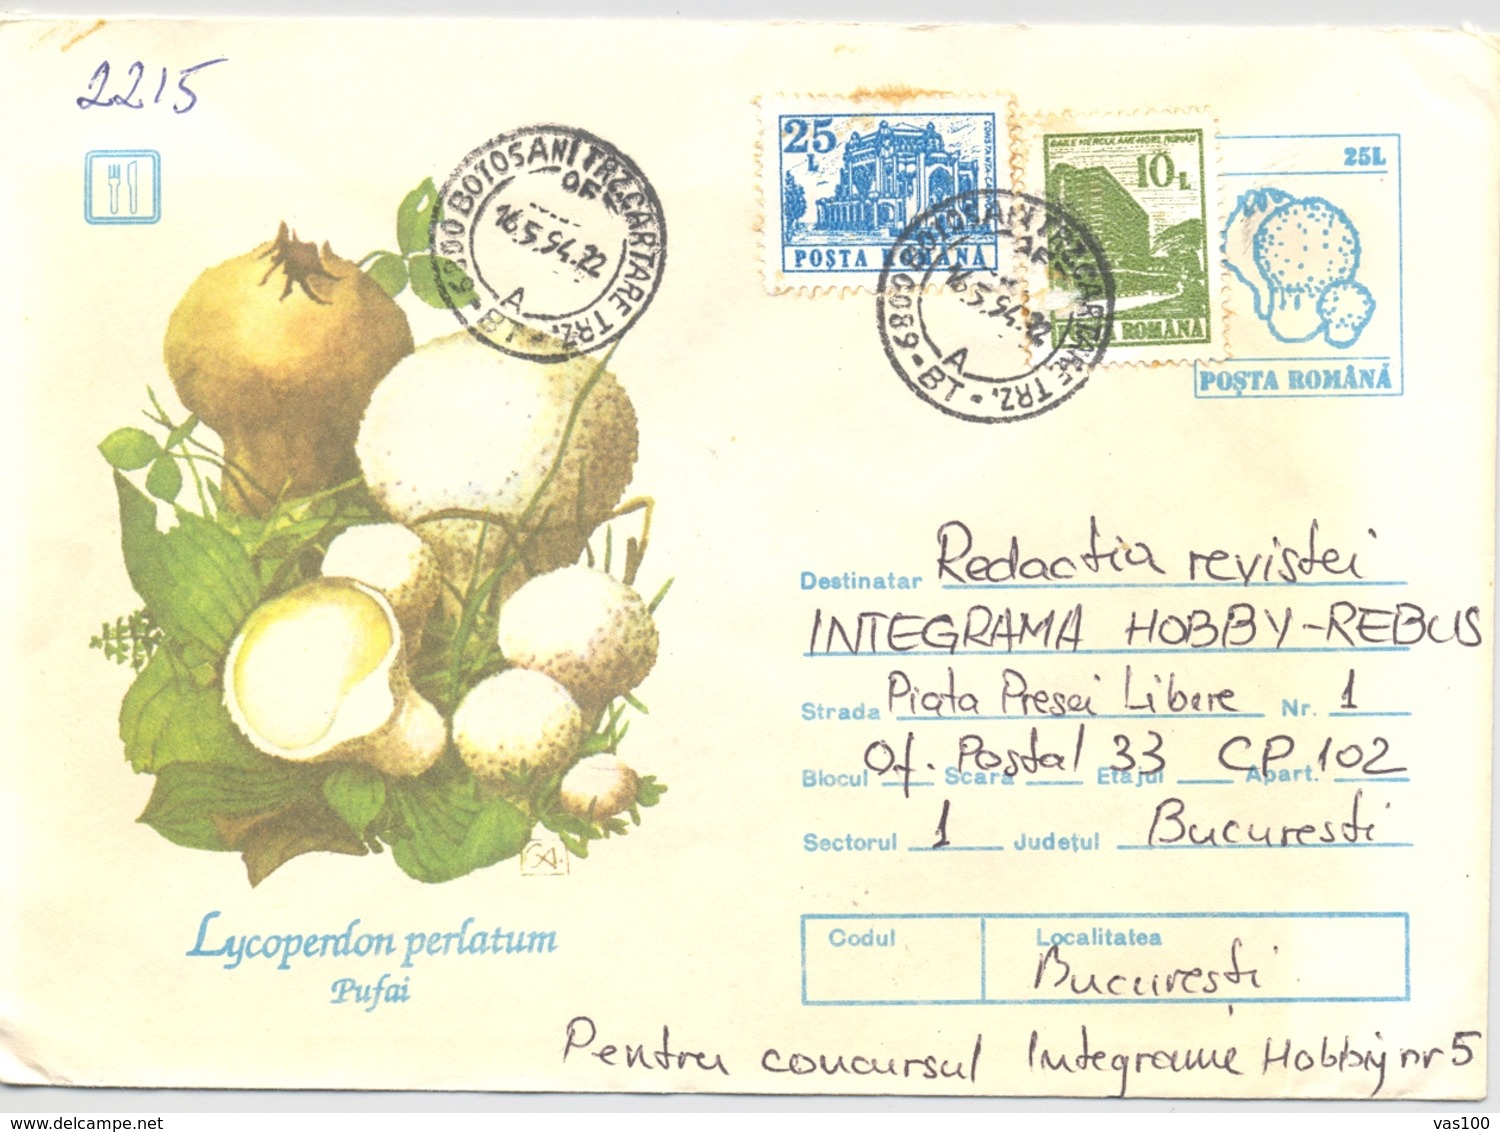 2215
6800 BOTOSANI TRZ. CARTARE TRZ. - BT -
OF
16.5.94.22
A
25 L
CONSTANTA-CA
POȘTA ROMÂNĂ
BAILE HERCULANE-HOTEL ROMAN
10 L
POȘTA ROMÂNĂ
6800 BOTOSANI TRZ. CARTARE TRZ. - BT -
OF
16.5.94.22
A
25L
POȘTA ROMÂNĂ
Destinatar Redactia revistei
INTEGRAMA HOBBY-REBUS
Strada Piata Presei Libere Nr. 1
Of. Postal 33 CP 102
Blocul Scara Etajul Apart.
Sectorul 1 Județul Bucuresti
Codul Localitatea
Bucureşti
Lycoperdon perlatum
Pufai
Pentru concursul Integrame Hobby nr 5
vas100